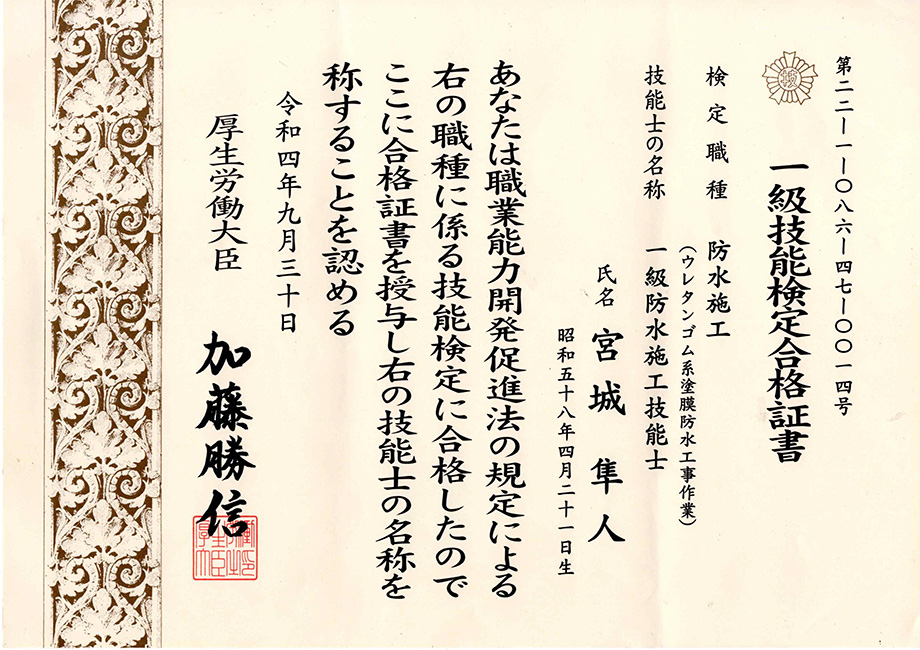 第二二―一―〇八六―四七―〇〇一四号
一級技能検定合格証書
検定職種 防水施工
(ウレタンゴム系塗膜防水工事作業)
技能士の名称 一級防水施工技能士
氏名 宮城 隼人
昭和五十八年四月二十一日生
あなたは職業能力開発促進法の規定による
右の職種に係る技能検定に合格したので
ここに合格証書を授与し右の技能士の名称を
称することを認める
令和四年九月三十日
厚生労働大臣 加藤勝信